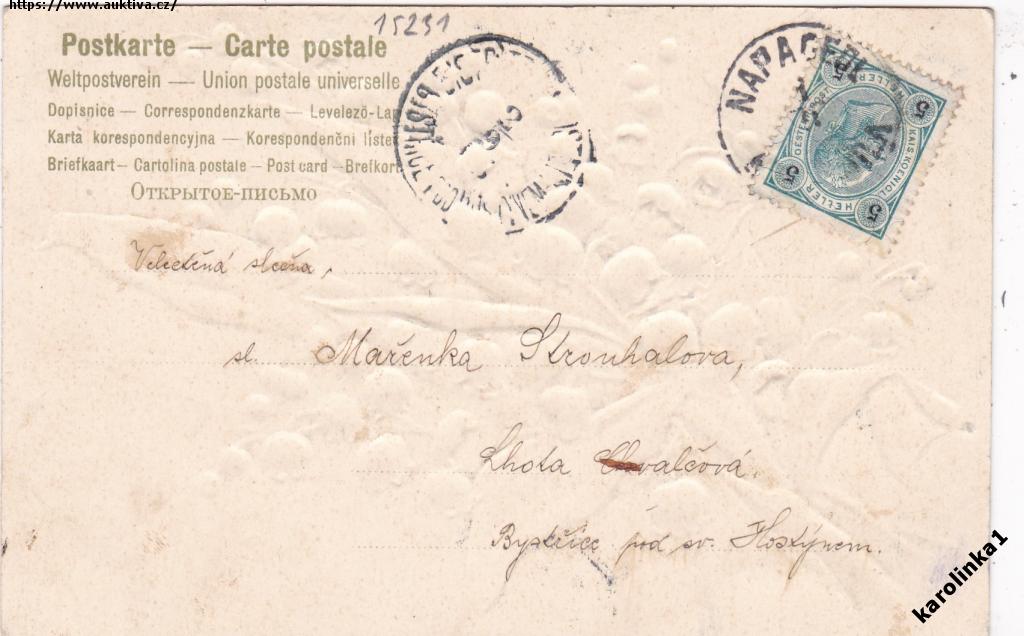 https://www.auktiva.cz/
15231
Postkarte — Carte postale
Weltpostverein — Union postale universelle
Dopisnice — Correspondenzkarte — Levelező-La
Karta korespondencyjna — Korespondenčni liste
Briefkaart — Cartolina postale — Post card — Brefkor
Открытое-письмо
NAPAGEDL
5
5
5
5
HELLER
HELLER
KAIS KOENIGL
OESTERR POST
Veletěná slečna,
sl. Mařenka Strouhalova,
Lhota Chvalčová.
Bystřice pod sv. Hostýnem.
karolinka1